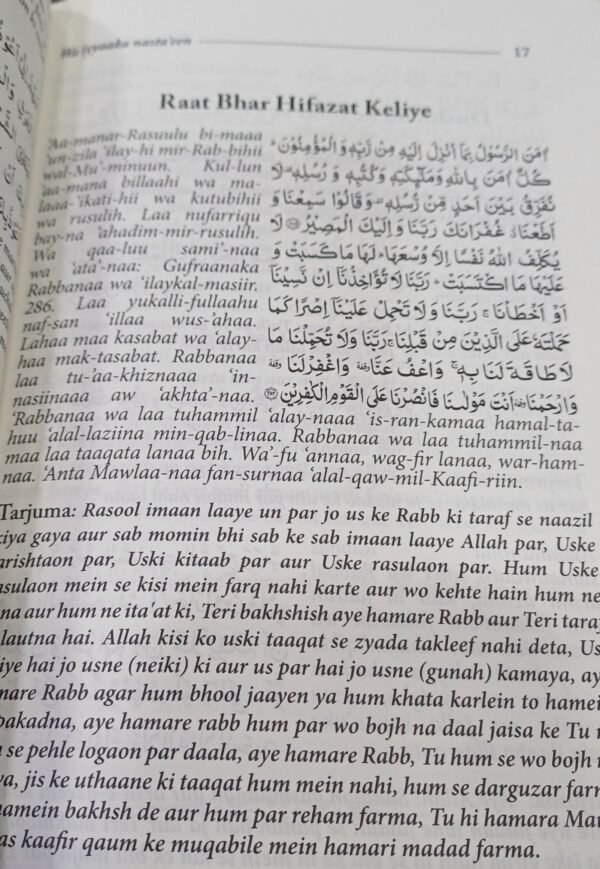 Wa iyyaaka nasta'een 17
Raat Bhar Hifazat Keliye
'Aa-manar-Rasuulu bi-maaa
'un-zila 'ilay-hi mir-Rab-bihii
wal-Mu'-minuun. Kul-lun
'aa-mana billaahi wa ma-
laaa-'ikati-hii wa kutubihii
wa rusulih. Laa nufarriqu
bay-na 'ahadim-mir-rusulih.
Wa qaa-luu sami'-naa
wa 'ata'-naa: Gufraanaka
Rabbanaa wa 'ilaykal-masiir.
286. Laa yukalli-fullaahu
naf-san 'illaa wus-'ahaa.
Lahaa maa kasabat wa 'alay-
haa mak-tasabat. Rabbanaa
laa tu-'aa-khiznaaa 'in-
nasiinaaa aw 'akhta'-naa.
اٰمَنَ الرَّسُوْلُ بِمَاۤ اُنْزِلَ اِلَيْهِ مِنْ رَّبِّهٖ وَ الْمُؤْمِنُوْنَ ؕ
كُلٌّ اٰمَنَ بِاللّٰهِ وَمَلٰٓئِكَتِهٖ وَكُتُبِهٖ وَرُسُلِهٖ ۫ لَا
نُفَرِّقُ بَيْنَ اَحَدٍ مِّنْ رُّسُلِهٖ ۫ وَقَالُوْا سَمِعْنَا وَ
اَطَعْنَا ٭۫ غُفْرَانَكَ رَبَّنَا وَ اِلَيْكَ الْمَصِيْرُ ﴿۲۸۵﴾ لَا
يُكَلِّفُ اللّٰهُ نَفْسًا اِلَّا وُسْعَهَا ؕ لَهَا مَا كَسَبَتْ وَ
عَلَيْهَا مَا اكْتَسَبَتْ ؕ رَبَّنَا لَا تُؤَاخِذْنَاۤ اِنْ نَّسِيْنَاۤ
اَوْ اَخْطَاْنَا ۚ رَبَّنَا وَلَا تَحْمِلْ عَلَيْنَاۤ اِصْرًا كَمَا
حَمَلْتَهٗ عَلَى الَّذِيْنَ مِنْ قَبْلِنَا ۚ رَبَّنَا وَلَا تُحَمِّلْنَا مَا
لَا طَاقَةَ لَنَا بِهٖ ۚ وَاعْفُ عَنَّا ٝ وَاغْفِرْ لَنَا ٝ
وَارْحَمْنَا ٝ اَنْتَ مَوْلٰىنَا فَانْصُرْنَا عَلَى الْقَوْمِ الْكٰفِرِيْنَ ﴿۲۸۶﴾
'Rabbanaa wa laa tuhammil 'alay-naaa 'is-ran-kamaa hamal-ta-
huu 'alal-laziina min-qab-linaa. Rabbanaa wa laa tuhammil-naa
maa laa taaqata lanaa bih. Wa'-fu 'annaa, wag-fir lanaa, war-ham-
naa. 'Anta Mawlaa-naa fan-surnaa 'alal-qaw-mil-Kaafi-riin.
Tarjuma: Rasool imaan laaye un par jo us ke Rabb ki taraf se naazil
kiya gaya aur sab momin bhi sab ke sab imaan laaye Allah par, Uske
arishtaon par, Uski kitaab par aur Uske rasulaon par. Hum Uske
asulaon mein se kisi mein farq nahi karte aur wo kehte hain hum ne
na aur hum ne ita'at ki, Teri bakhshish aye hamare Rabb aur Teri taraf
lautna hai. Allah kisi ko uski taaqat se zyada takleef nahi deta, Us
iye hai jo usne (neiki) ki aur us par hai jo usne (gunah) kamaya, ay
mare Rabb agar hum bhool jaayen ya hum khata karlein to hamein
pakadna, aye hamare rabb hum par wo bojh na daal jaisa ke Tu n
se pehle logaon par daala, aye hamare Rabb, Tu hum se wo bojh n
va, jis ke uthaane ki taaqat hum mein nahi, hum se darguzar farm
hamein bakhsh de aur hum par reham farma, Tu hi hamara Mau
as kaafir qaum ke muqabile mein hamari madad farma.